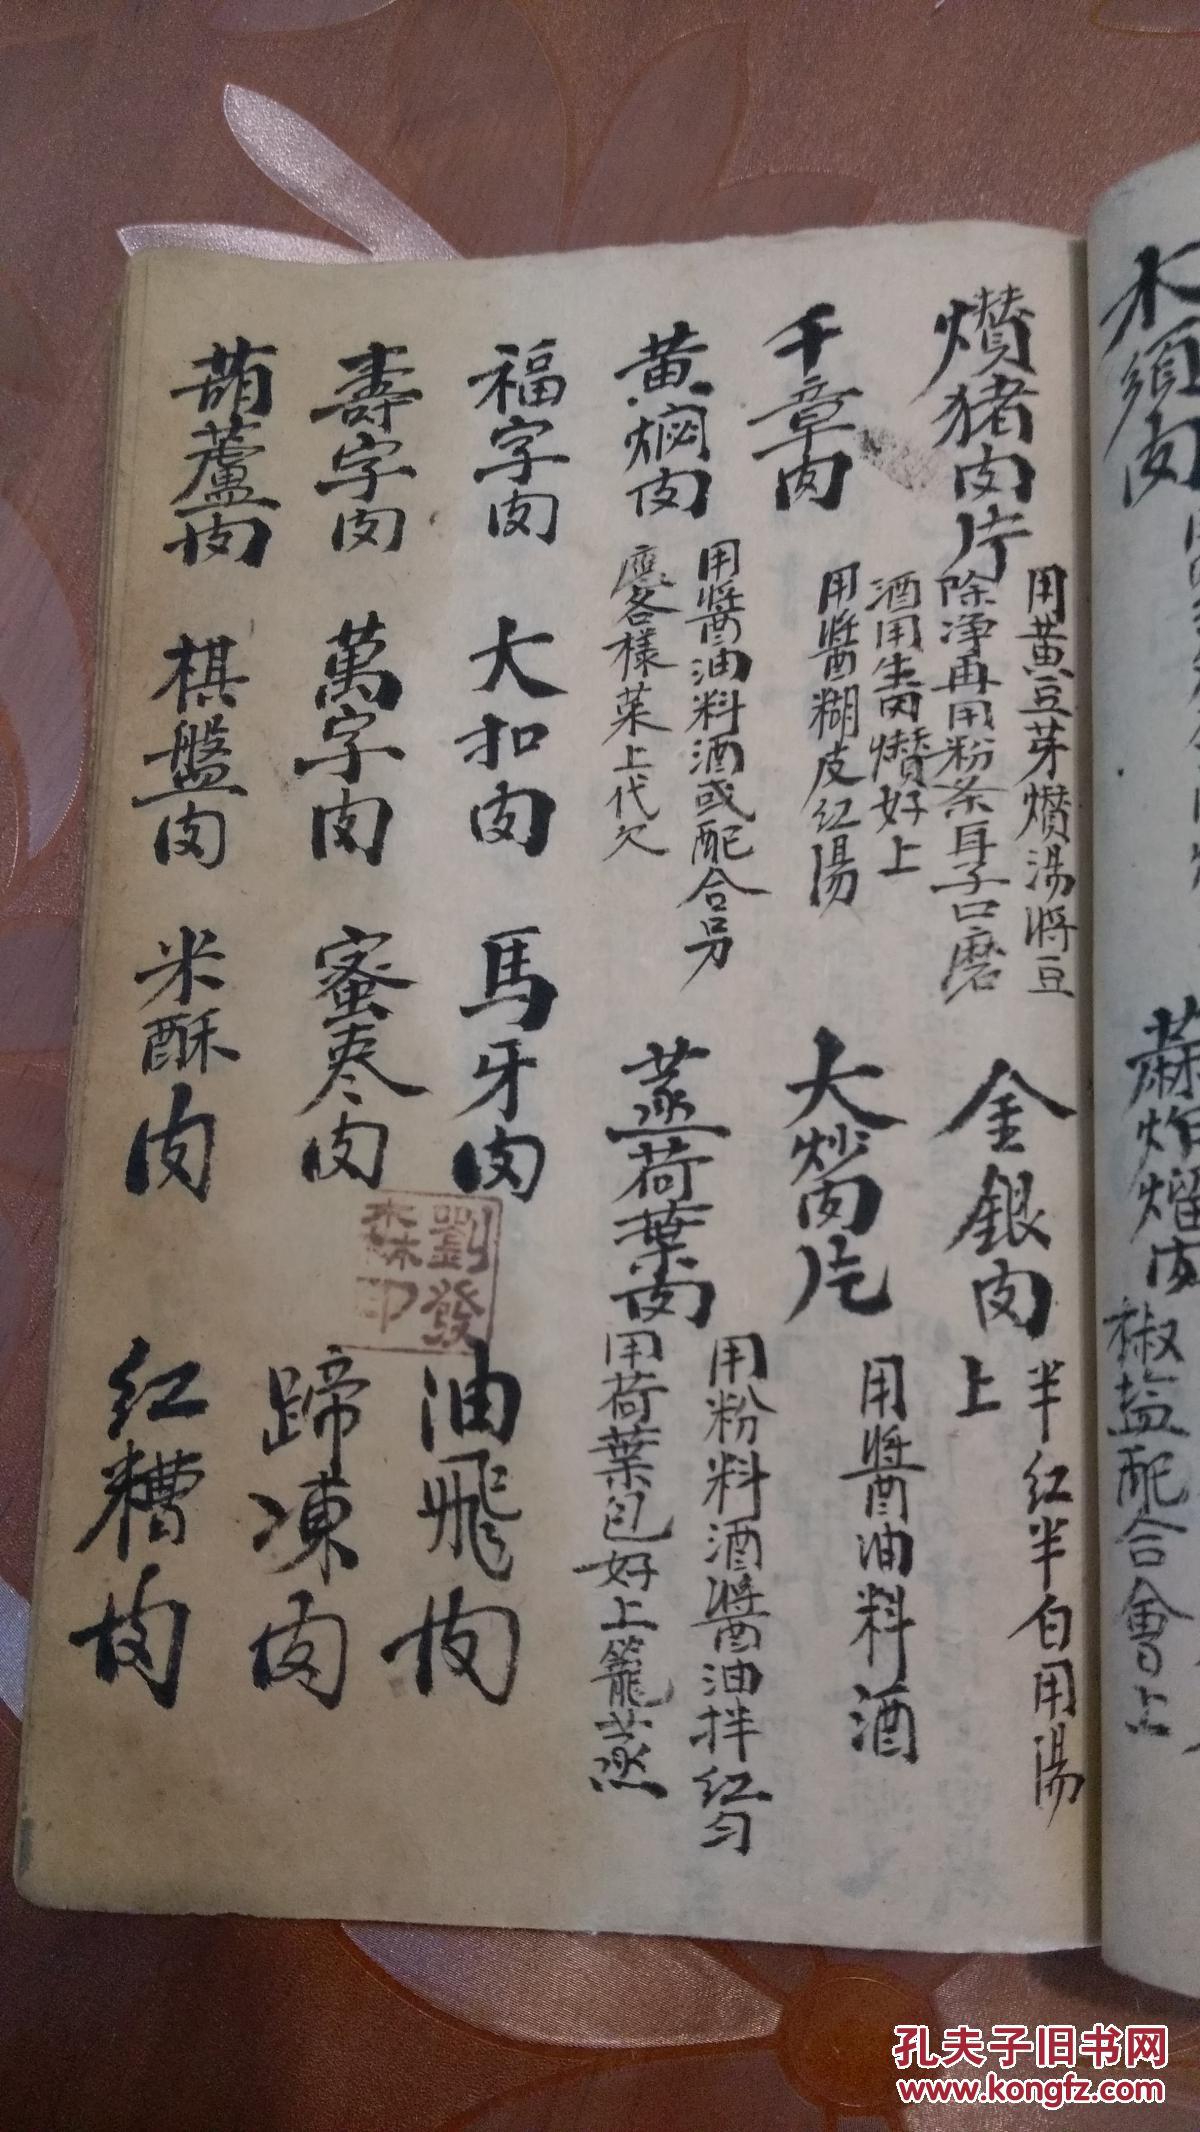 木須肉
蔴炸熘肉
椒盐配合會上
爦猪肉片
用黄豆芽爦湯將豆
除净再用粉条耳子口磨
金銀肉
半红半白用湯
上
千章肉
酒用生肉爦好上
用醬糊皮红湯
大炒肉片
用醬油料酒
黄焖肉
用醬油料酒或配合另
麼各樣菜上代欠
蒸荷葉肉
用粉料酒醬油拌红匀
用荷葉包好上籠蒸
福字肉
大扣肉
馬牙肉
油飛肉
壽字肉
萬字肉
蜜卷肉
蹄凍肉
葫蘆肉
棋盤肉
米酥肉
红糟肉
劉發
森印
孔夫子旧书网
www.kongfz.com